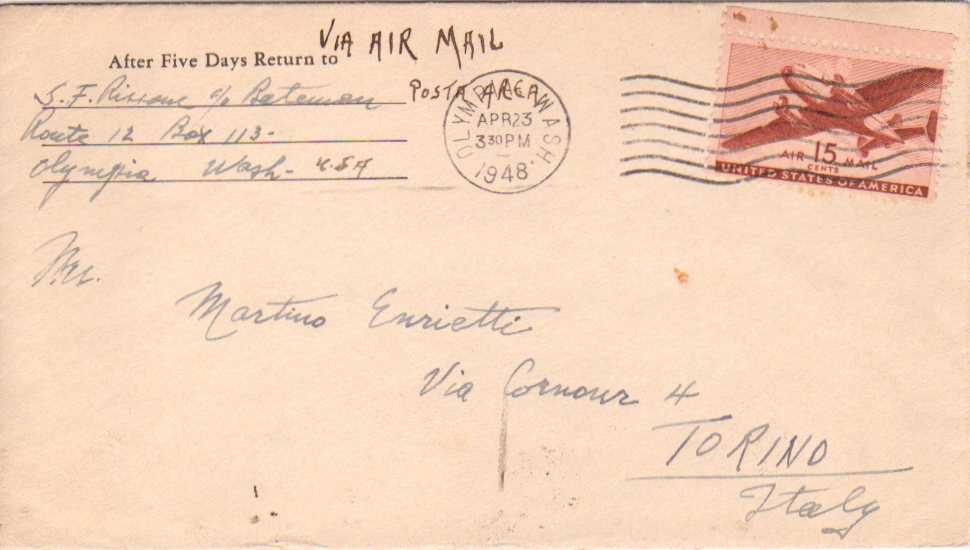 VIA AIR MAIL
After Five Days Return to
POSTA AEREA
S. F. Rissone c/o Bateman
Route 12 Box 113-
Olympia Wash- U.S.A
OLYMPIA, WASH.
APR 23
3 30 PM
1948
AIR 15 MAIL
CENTS
UNITED STATES OF AMERICA
Mr.
Martino Enrietti
Via Cornour 4
TORINO
Italy